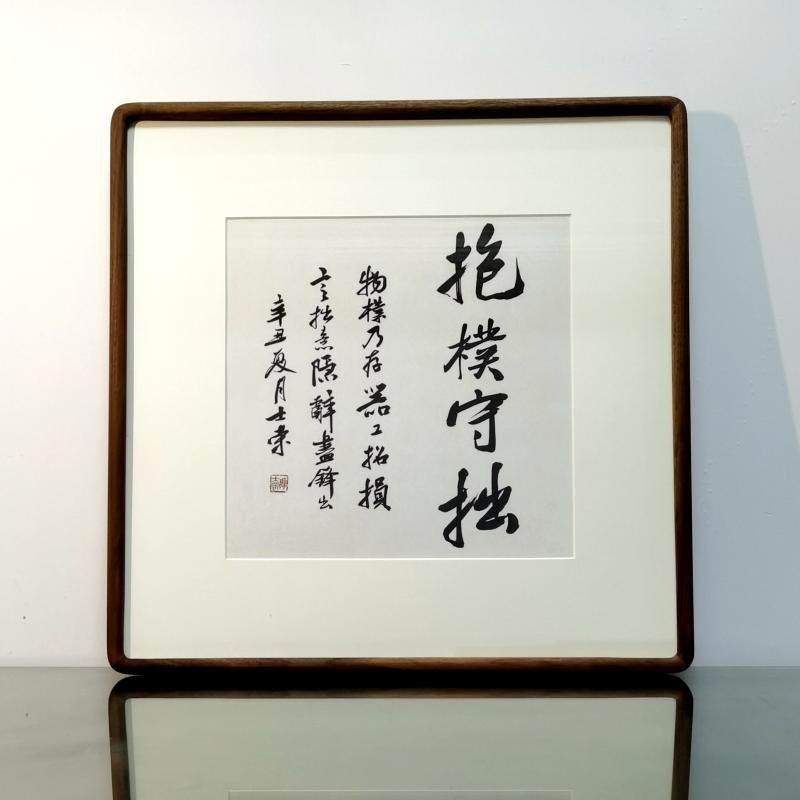 抱樸守拙
物樸乃存器工招損
言拙意隱辭盡鋒出
辛丑夏月士東